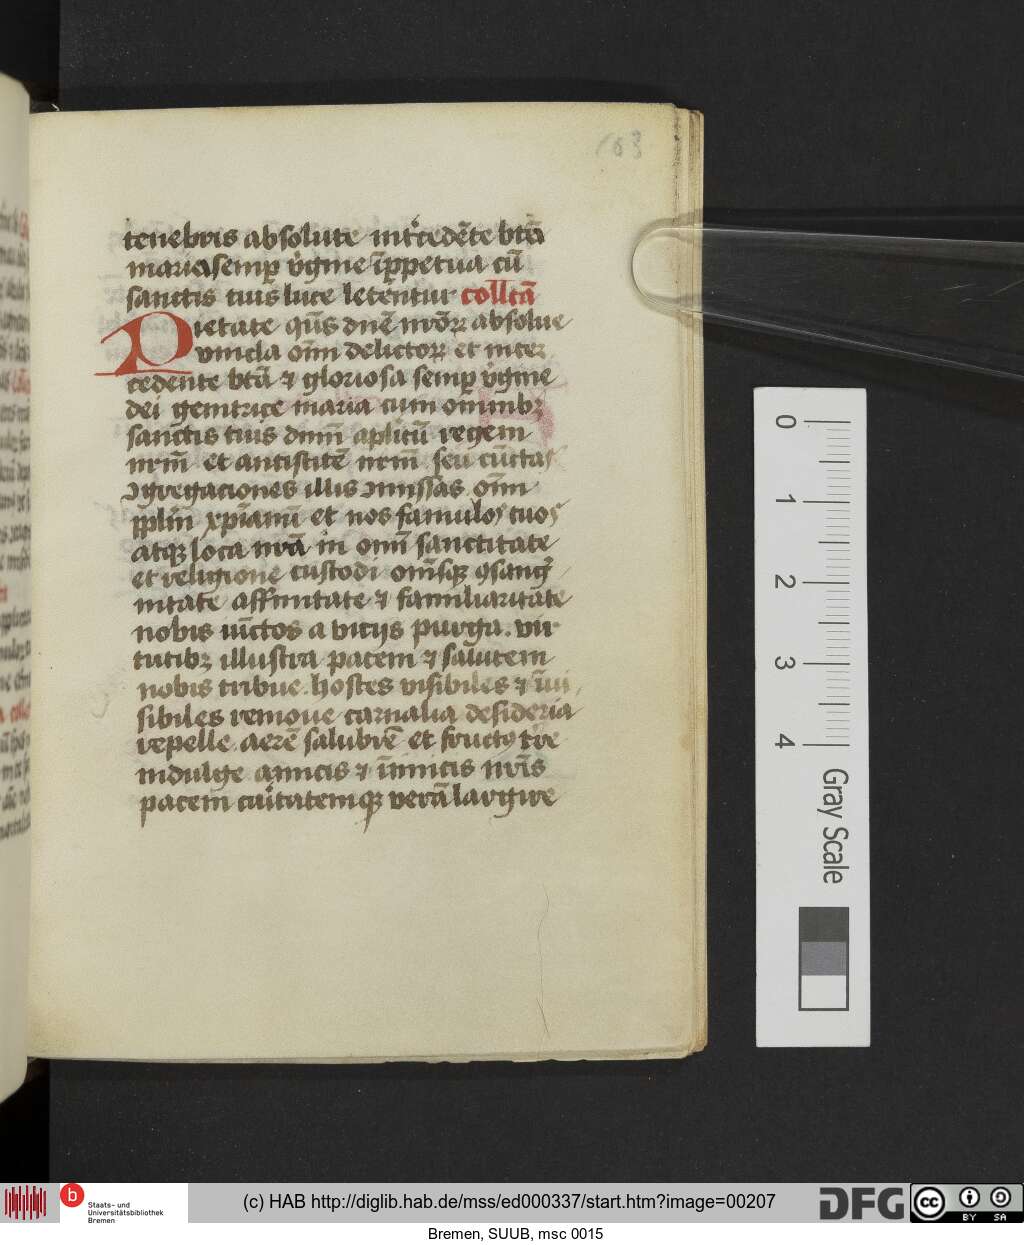 103
tenebris absolute int'cedēte btā
maria semp v'gine īppetua cū
sanctis tuis luce letentur collcā
Pietate qūs dnē nrōꝝ absolue
vincla oīm delictoꝝ et inter
cedente btā ⁊ gloriosa semp v'gine
dei genitrice maria cum omnibꝫ
sanctis tuis dnm̄ aplicū regem
nrm̄ et antistitē nrm̄ seu cūctas
ꝯgregaciones illis ꝯmissas om̄
pplm̄ xpianū et nos famulos tuos
atqꝫ loca nrā in omī sanctitate
et religione custodi omīsqꝫ ꝯsang'
nitate affinitate ⁊ familiaritate
nobis iūctos a vicijs purga . vir
tutibꝫ illustra pacem ⁊ salutem
nobis tribue . hostes visibiles ⁊ īvi
sibiles remoue carnalia desideria
repelle . aerē salubrē et fructꝰ t're
indulge amicis ⁊ īimicis nrīs
pacem caritatemqꝫ verā largire
0
1
2
3
4
Gray Scale
b
Staats- und
Universitätsbibliothek
Bremen
(c) HAB http://diglib.hab.de/mss/ed000337/start.htm?image=00207
DFG
cc
BY SA
Bremen, SUUB, msc 0015